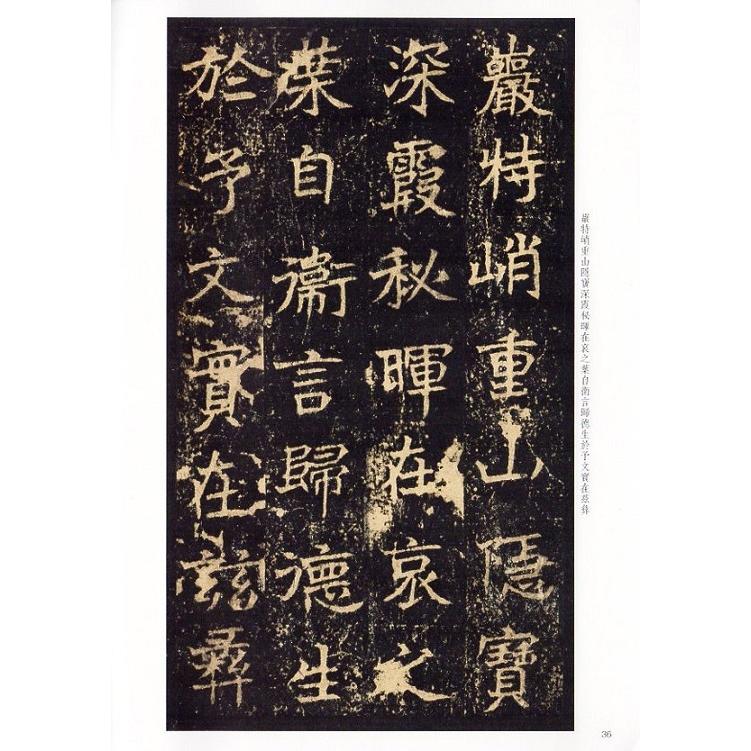 巖特峭重山隱寶
深霞秘暉在哀之
葉自衞言歸德生
於予文實在茲彝
巖特峭重山隱寶深霞秘暉在哀之葉自衞言歸德生於予文實在茲彝
36